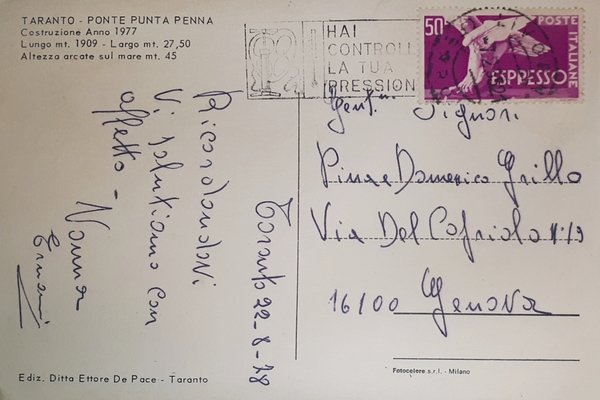 TARANTO - PONTE PUNTA PENNA
Costruzione Anno 1977
Lungo mt. 1909 - Largo mt. 27,50
Altezza arcate sul mare mt. 45
Ricordandovi
Vi salutiamo con
affetto - Nonna
Ermani
Taranto 22-8-78
HAI
CONTROLL
LA TUA
PRESSION
50
POSTE
ITALIANE
ESPRESSO
Gent.mi Signori
Pina e Domenico Grillo
Via Del Cafriolo N:19
16100 Genova
Ediz. Ditta Ettore De Pace - Taranto
Fotocelere s.r.l. - Milano